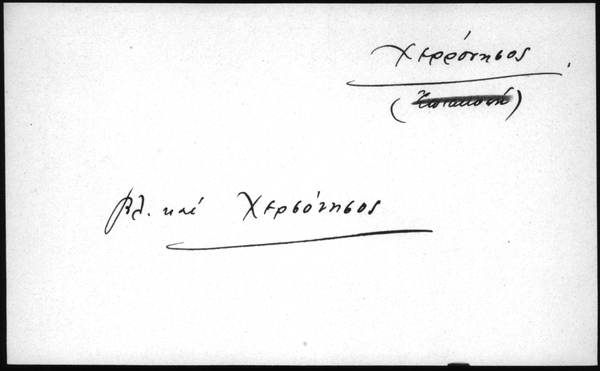 Χερρόνησος.
βλ. καί Χερσόνησος